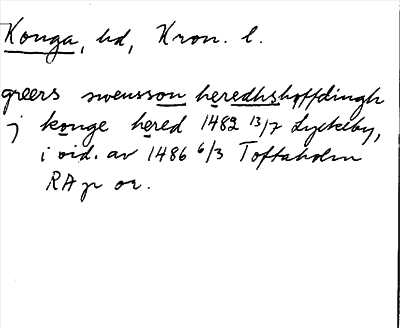 Konga, hd, Kron. l.
greers swensson heredhshøffdingh
j konge hered 1482 13/7 Lyckeby,
i vid. av 1486 6/3 Toftaholm
RA p or.